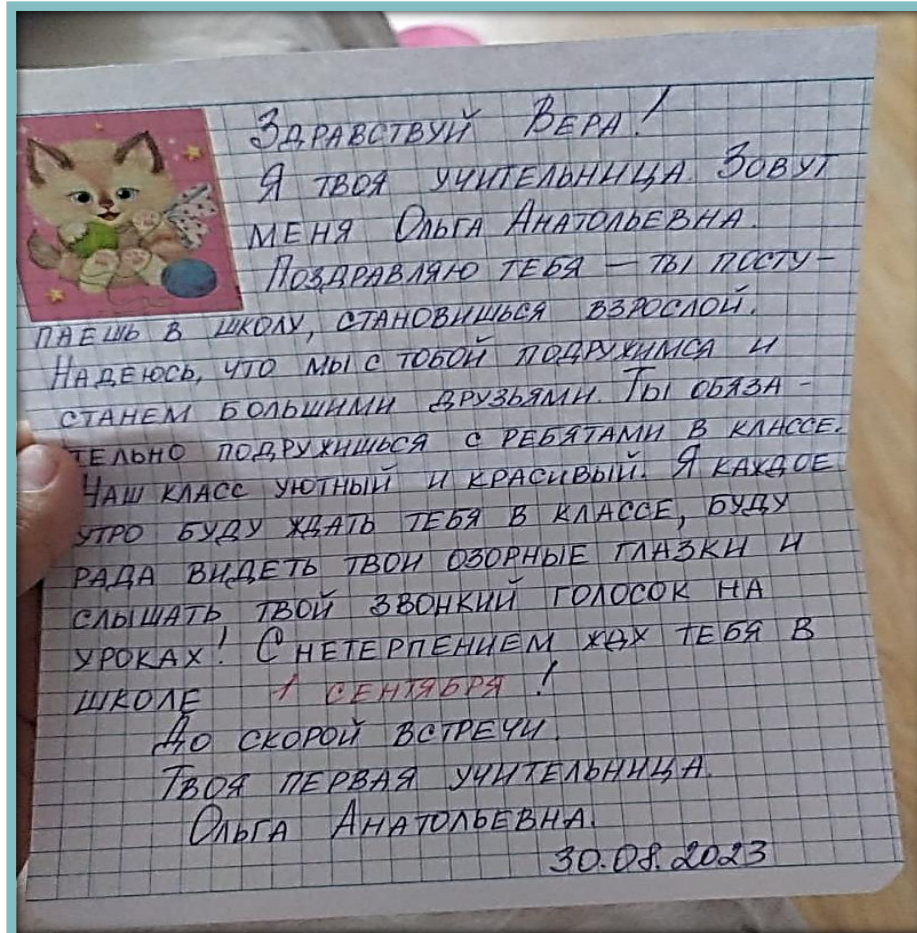 Здравствуй Вера!
Я твоя учительница. Зовут
меня Ольга Анатольевна.
Поздравляю тебя — ты посту-
паешь в школу, становишься взрослой.
Надеюсь, что мы с тобой подружимся и
станем большими друзьями. Ты обяза-
тельно подружишься с ребятами в классе.
Наш класс уютный и красивый. Я каждое
утро буду ждать тебя в классе, буду
рада видеть твои озорные глазки и
слышать твой звонкий голосок на
уроках! С нетерпением жду тебя в
школе 1 сентября!
До скорой встречи.
Твоя первая учительница.
Ольга Анатольевна.
30.08.2023